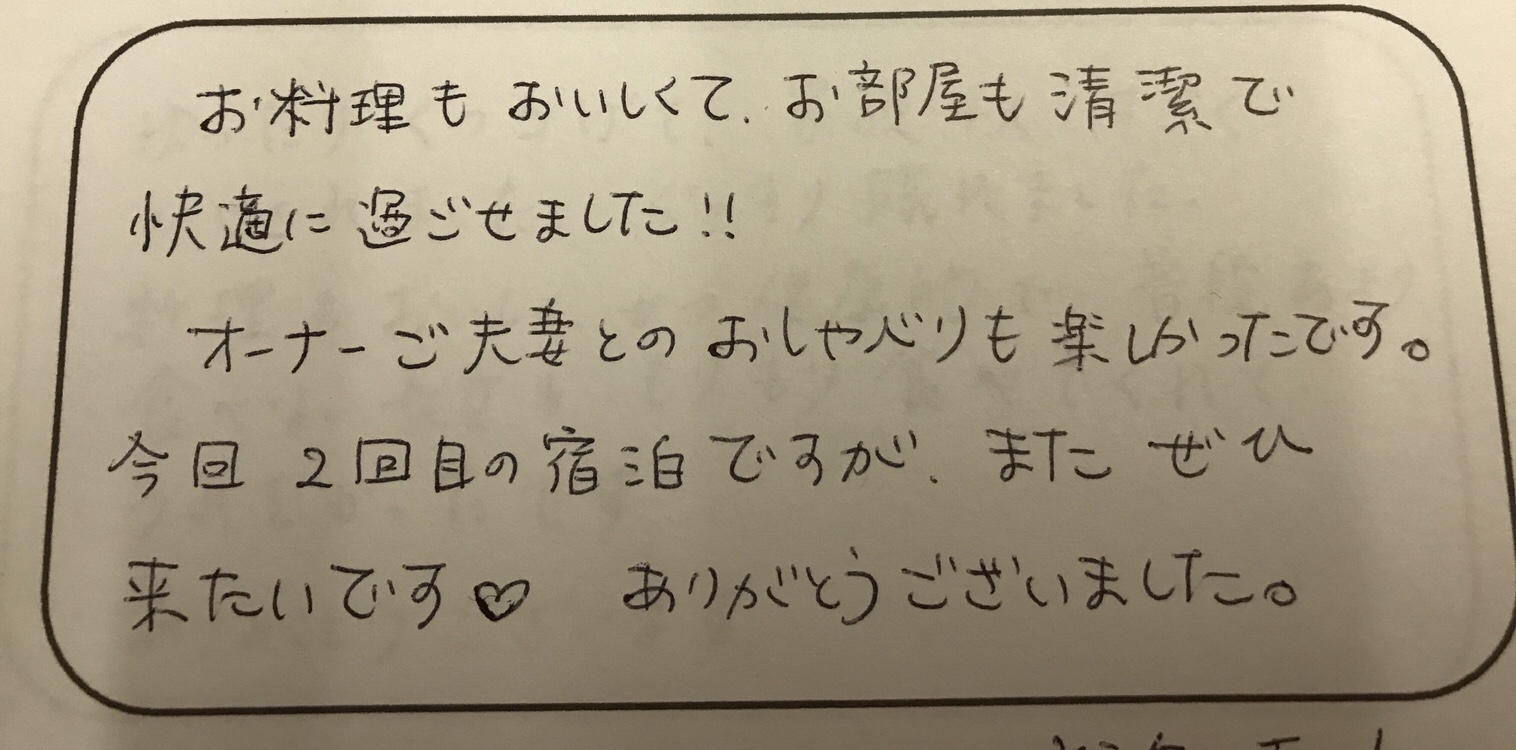 お料理も おいしくて、お部屋も 清潔で
快適に 過ごせました!!
オーナーご夫妻との おしゃべりも 楽しかったです。
今回 2回目の 宿泊ですが、また ぜひ
来たいです♡ ありがとうございました。